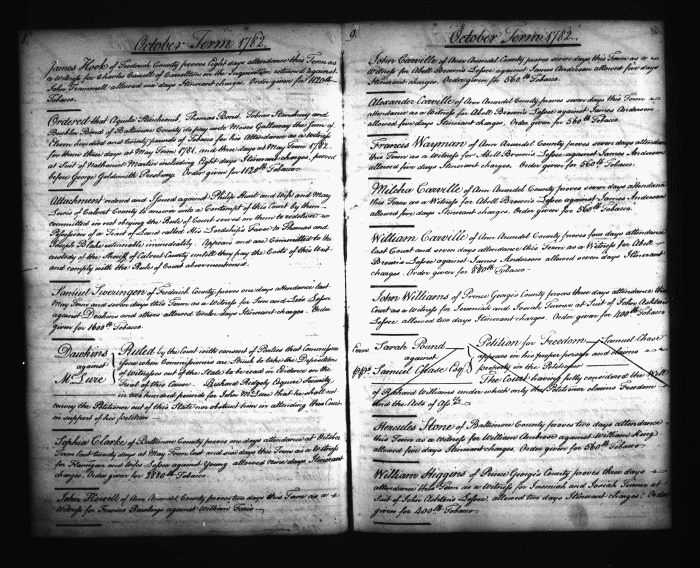 October Term 1782.
James Hook of Frederick County proves Eight days attendance this Term as
a Witness for Charles Carroll of Carrollton on the Inquisition returned against
John allowed six days Itinerant charges. Order given for 1120 lb
Tobacco.
Ordered that Aquila Thomas Bond, Tobias Stansbury and
Buckler Bond of Baltimore County do pay unto Moses Galloway the sum of
Eleven hundred and twenty pounds of Tobacco for his Attendance as a Witness
for them three days at May Term 1781, and three days at May Term 1782.
at Suit of Nathaniel Martin including Eight days Itinerant charges, proved
before George Goldsmith Presbury. Order given for 1120 lb Tobacco.
Attachment ordered and Issued against Philip Hunt and Wife and May
Lewis of Calvert County to answer unto a Contempt of this Court by them
committed in not obeying the Rule of Court served on them to restore
Possession of a Tract of Land called His Lordship's Favor to Thomas and
Joseph Blake returnable immediately. Appears and are Committed to the
custody of the Sheriff of Calvert County untill they pay the Costs of this Writ
and comply with the Rule of Court abovementioned.
Samuel Swearingen of Frederick County proves one days attendance last
May Term and seven days this Term as a Witness for and Lee's Lessee
against Deakins and others allowed twelve days Itinerant charges. Order
given for 1600 lb Tobacco.
Dawkins
against
Mc Lure
Ruled by the Court with consent of Parties that Commission
issue when Commissioners are Struck to take the Deposition
of Witnesses out of the State to be read in Evidence on the
Trial of this Cause. Richard Ridgely Esquire Security
in two hundred pounds for John McLure that he shall not
convey the Petitioner out of this State nor obstruct him in attending this Court
in support of his petition
Sophia Clarke of Baltimore County proves one days attendance at October
Term last twenty days at May Term last and six days this Term as a Witness
for Flanigan and Wifes Lessee against Young allowed days Itinerant
charges. Order given for lb Tobacco
John Howell of Ann Arundel County proves two days this Term as a
Witness for Francis Rawlings against William
9.
October Term 1782.
John Carville of Ann Arundel County proves seven days this Term as a
Witness for Abell Brown's Lessee against James Anderson allowed five days
Itinerant charges. Order given for 560 lb Tobacco.
Alexander Carville of Ann Arundel County proves seven days this Term
attendance as a Witness for Abell Brown's Lessee against James Anderson
allowed five days Itinerant charges. Order given for 560 lb Tobacco.
Francis Wayman of Ann Arundel County proves seven days attendance
this Term as a Witness for Abell Brown's Lessee against James Anderson
allowed five days Itinerant charges. Order given for 560 lb Tobacco.
Carville of Ann Arundel County proves seven days attendance
this Term as a Witness for Abell Brown's Lessee against James Anderson
allowed five days Itinerant charges. Order given for 560 lb Tobacco
William Carville of Ann Arundel County proves four days attendance
last Court and seven days attendance this Term as a Witness for Abell
Brown's Lessee against James Anderson allowed seven days Itinerant
charges. Order given for 880 lb Tobacco.
John Williams of Prince Georges County proves three days attendance this
Court as a Witness for Jeremiah and Josiah Turner at Suit of John Ashton's
Lessee allowed two days Itinerant charges. Order given for 400 lb Tobacco.
Sarah Pound
against
Samuel Chase Esqr.
Petition for Freedom Samuel Chase
appears in his proper person and claims
property in the Petitioner
The Court having fully considered the Will
of Richard Williams under which only the Petitioner claims Freedom
and the Acts of Assy.
Hercules Stone of Baltimore County proves two days attendance
this Term as a Witness for William Ambrose against William King
allowed five days Itinerant charges. Order given for 560 lb Tobacco.
William Higgins of Prince George's County proves three days
attendance this Term as a Witness for Jeremiah and Josiah Turner at
Suit of John Ashton's Lessee, allowed two days Itinerant charges. Order
given for 400 lb Tobacco